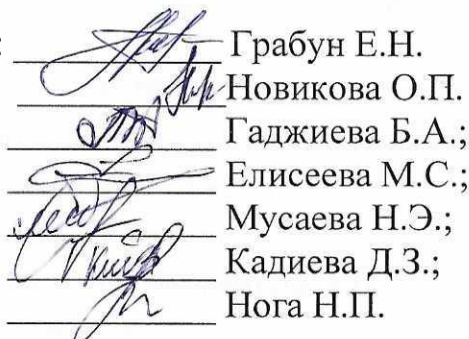 : Грабун Е.Н.
Новикова О.П.
Гаджиева Б.А.;
Елисеева М.С.;
Мусаева Н.Э.;
Кадиева Д.З.;
Нога Н.П.